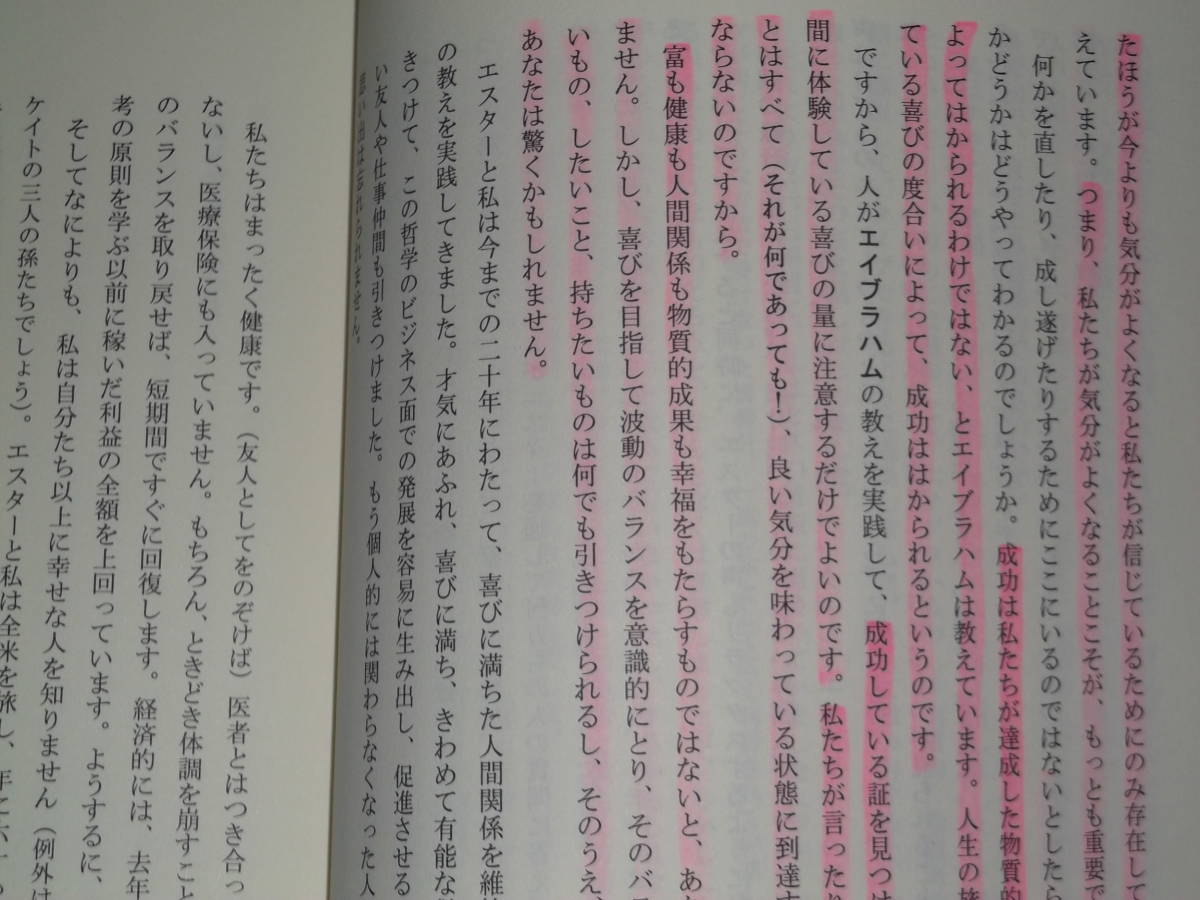 たほうが今よりも気分がよくなると私たちが信じているためにのみ存在して
えています。つまり、私たちが気分がよくなることこそが、もっとも重要で
何かを直したり、成し遂げたりするためにここにいるのではないとしたら
かどうかはどうやってわかるのでしょうか。成功は私たちが達成した物質的
よってはかられるわけではない、とエイブラハムは教えています。人生の旅
ている喜びの度合いによって、成功ははかられるというのです。
ですから、人がエイブラハムの教えを実践して、成功している証を見つけ
間に体験している喜びの量に注意するだけでよいのです。私たちが言ったり
とはすべて（それが何であっても！）、良い気分を味わっている状態に到達す
ならないのですから。
富も健康も人間関係も物質的成果も幸福をもたらすものではないと、あ
ません。しかし、喜びを目指して波動のバランスを意識的にとり、そのバラ
いもの、したいこと、持ちたいものは何でも引きつけられるし、そのうえ、
あなたは驚くかもしれません。
エスターと私は今までの二十年にわたって、喜びに満ちた人間関係を維
の教えを実践してきました。才気にあふれ、喜びに満ち、きわめて有能な
きつけて、この哲学のビジネス面での発展を容易に生み出し、促進させる
い友人や仕事仲間も引きつけました。もう個人的には関わらなくなった人
思い出は忘れられません。
私たちはまったく健康です。（友人としてをのぞけば）医者とはつき合っ
ないし、医療保険にも入っていません。もちろん、ときどき体調を崩すこと
のバランスを取り戻せば、短期間ですぐに回復します。経済的には、去年
考の原則を学ぶ以前に稼いだ利益の全額を上回っています。ようするに、
そしてなによりも、私は自分たち以上に幸せな人を知りません（例外は
ケイトの三人の孫たちでしょう）。エスターと私は全米を旅し、年に六